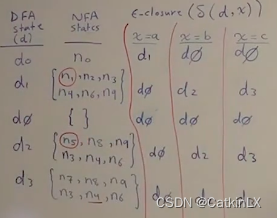 DFA NFA ε-closure (δ(d,x))
state states
(d) x=a x=b x=c
d0 n0 d1 dØ dØ
d1 [n1, n2, n3 dØ d2 d3
n4, n6, n9]
dØ { } dØ dØ dØ
d2 [n5, n8, n9 dØ d2 d3
n3, n4, n6]
d3 [n7, n8, n9
n3, n4, n6] d
CSDN @CatkinLX